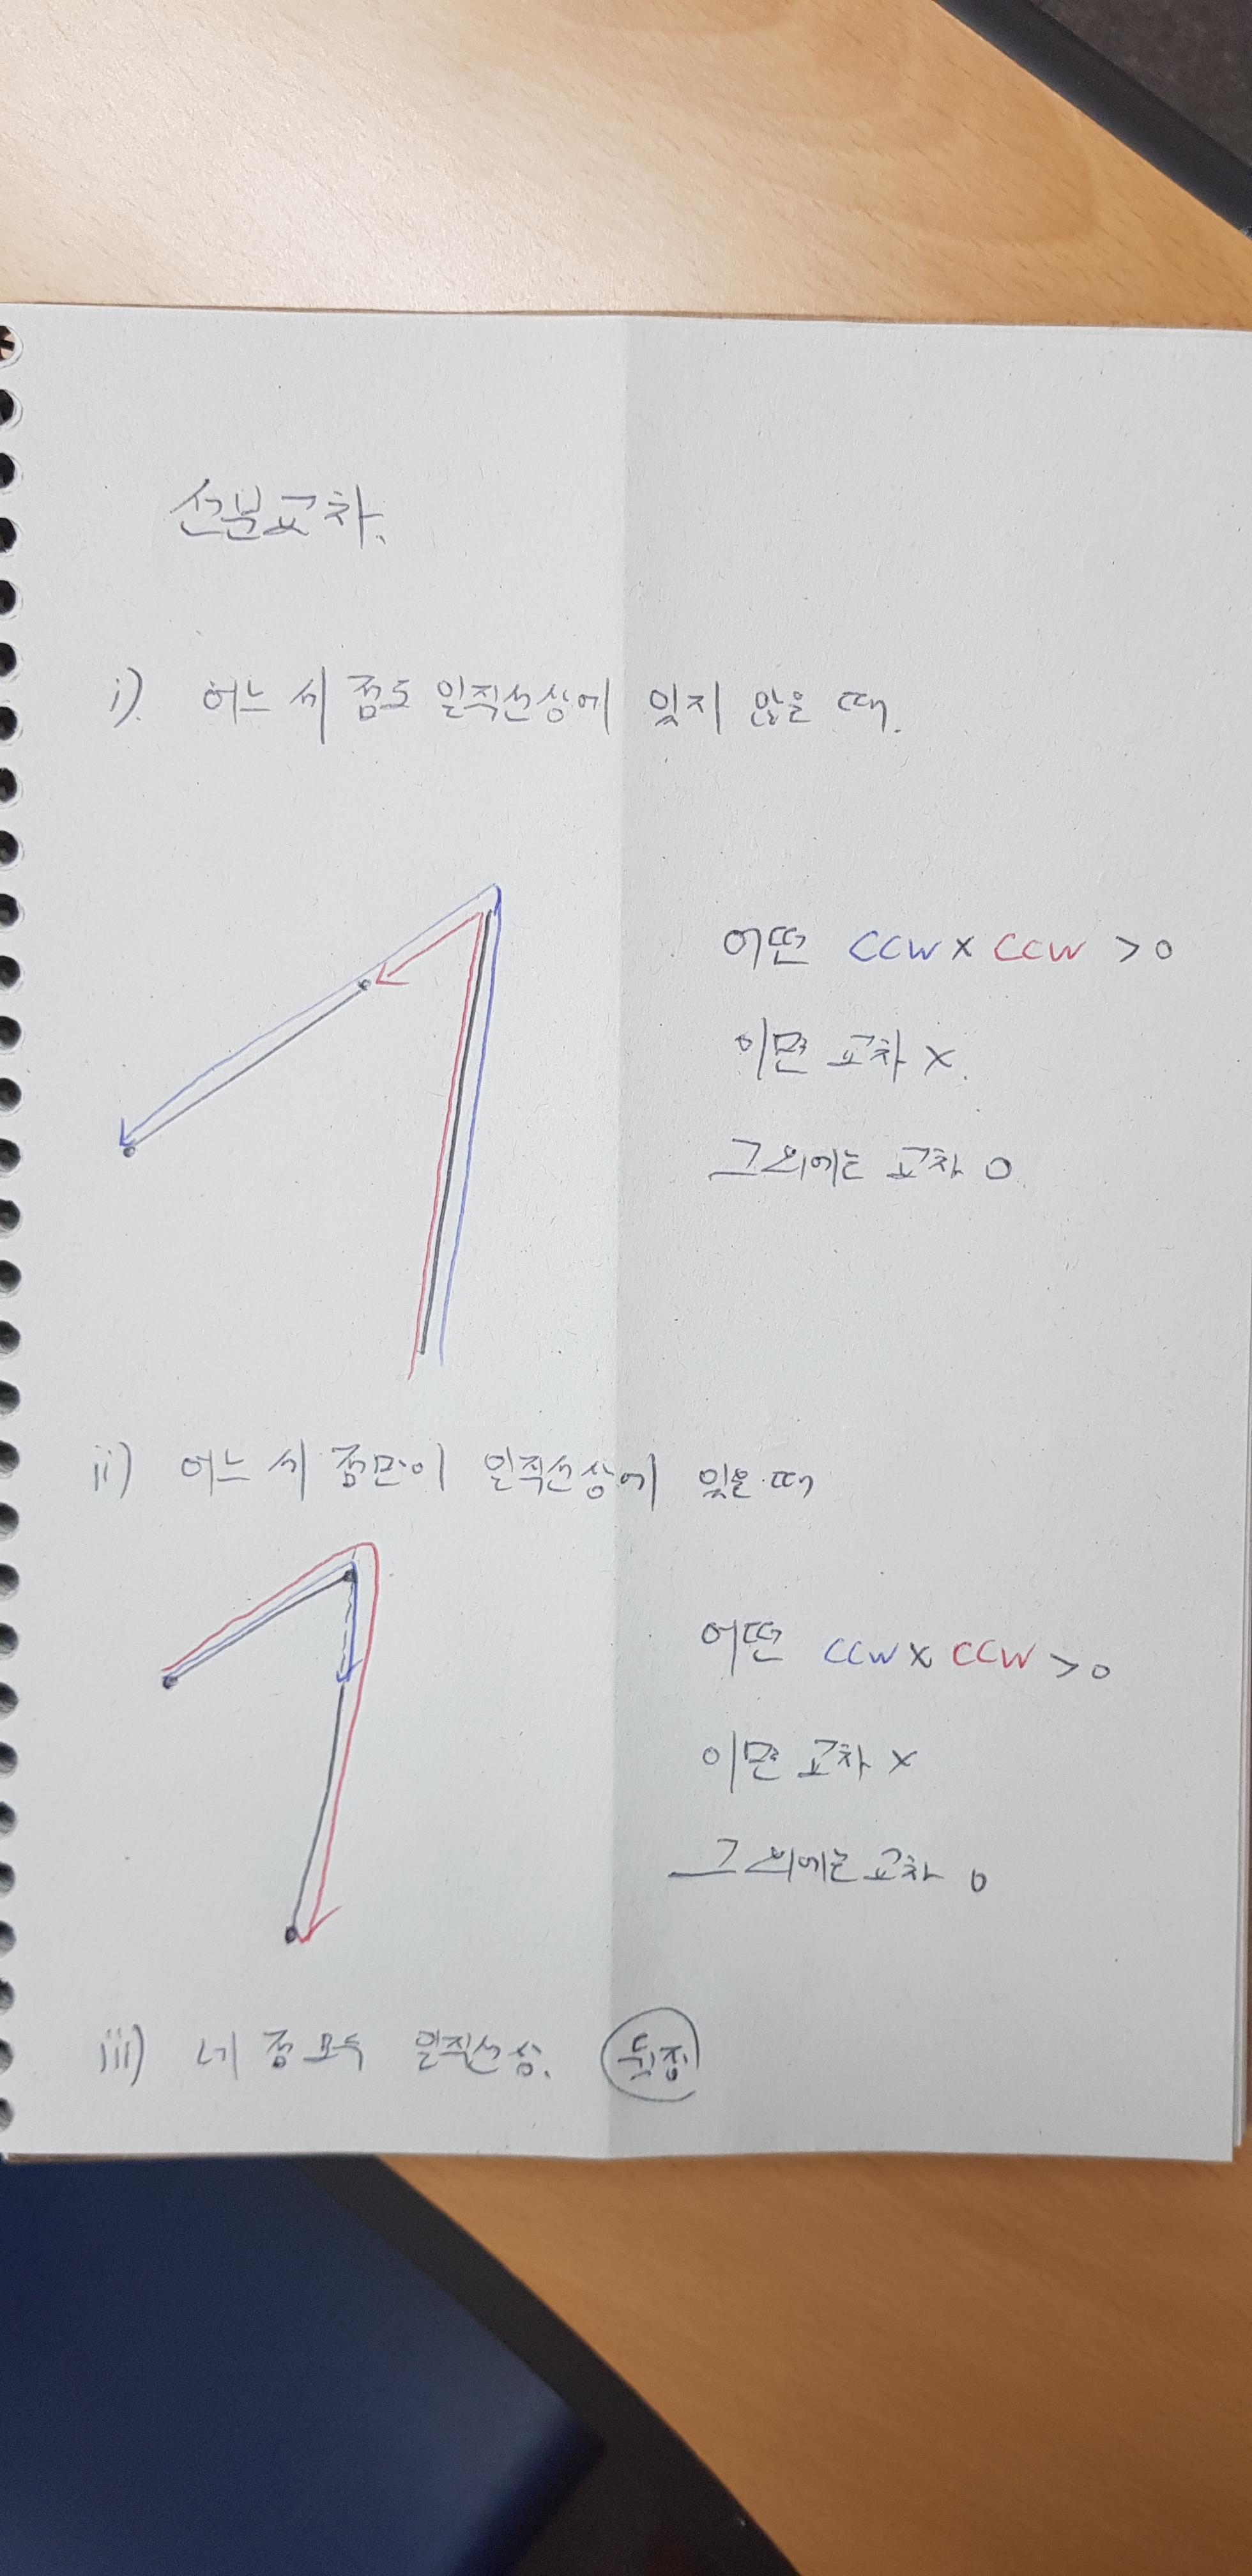 선분교차.
i). 어느 세 점도 일직선상에 있지 않을 때.
어떤 CCW x CCW > 0
이면 교차 X.
그 외에는 교차 O.
ii) 어느 세 점만이 일직선상에 있을 때
어떤 CCW x CCW > 0
이면 교차 X
그 외에는 교차 O
iii) 네 점 모두 일직선상.